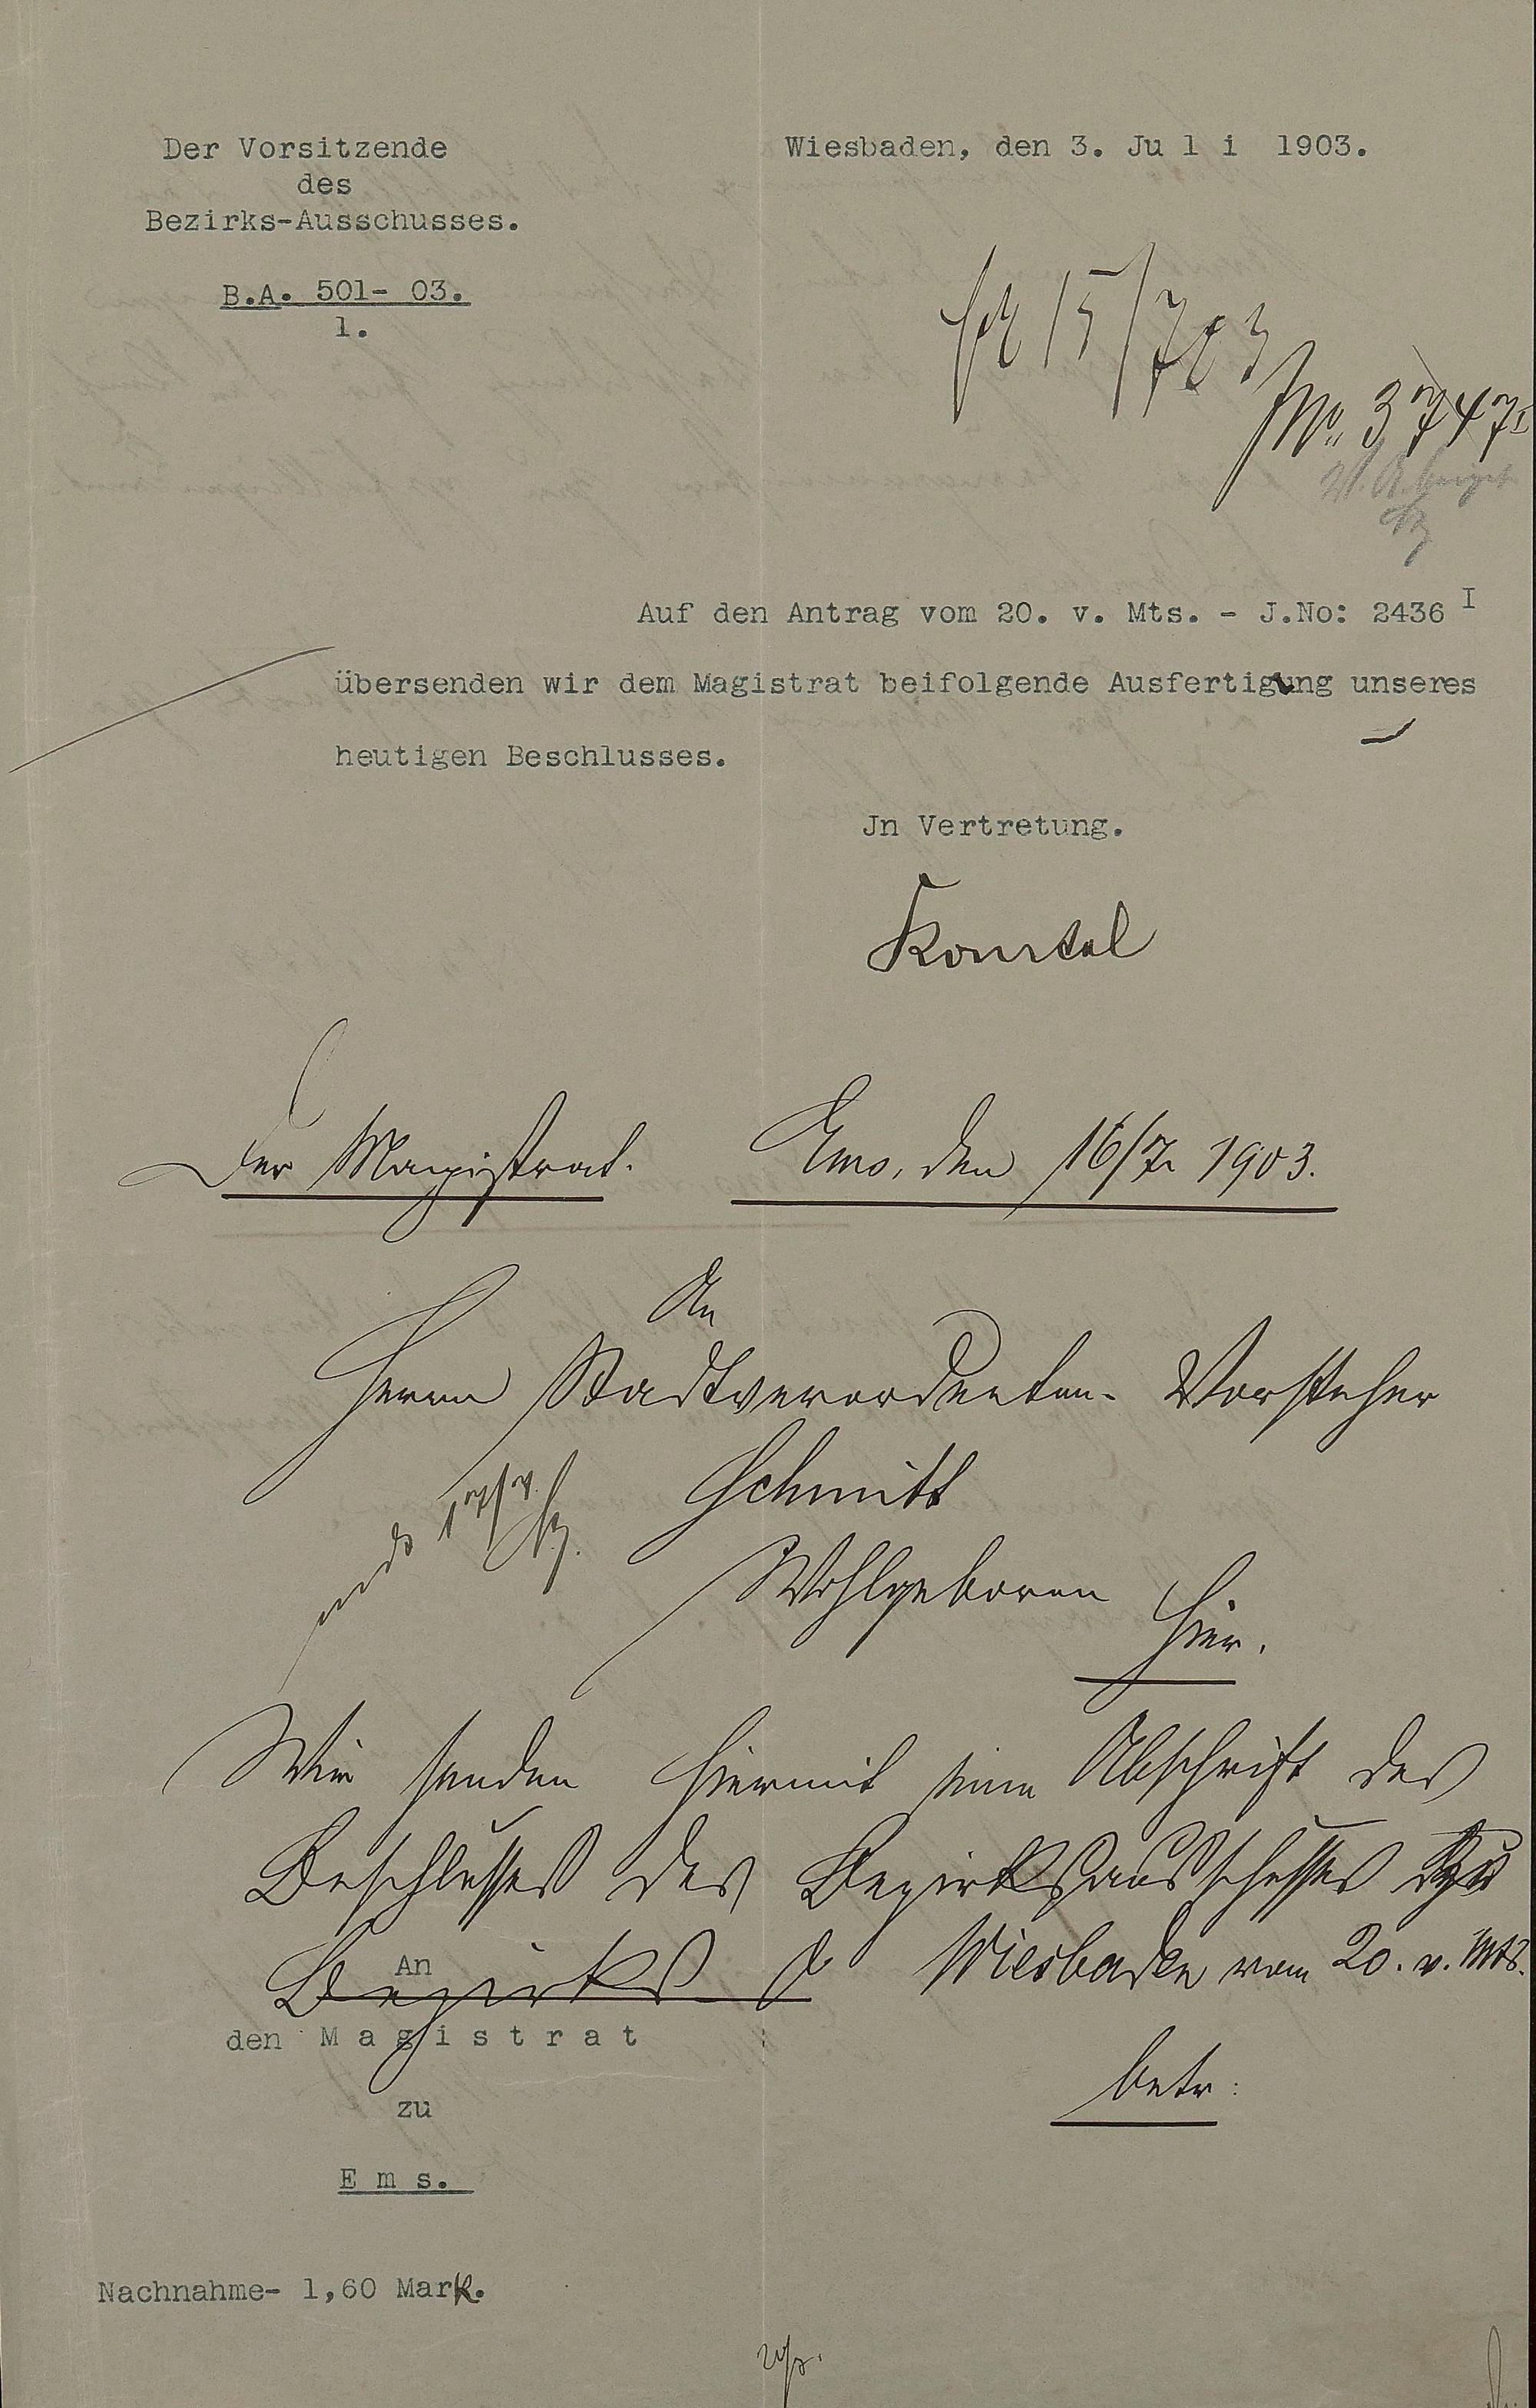 Der Vorsitzende
des
Bezirks-Ausschusses.
B.A. 501- 03.
1.
Wiesbaden, den 3. Ju l i 1903.
15/7 03
No. 3747 I
Auf den Antrag vom 20. v. Mts. - J.No: 2436 I
übersenden wir dem Magistrat beifolgende Ausfertigung unseres
heutigen Beschlusses.
Jn Vertretung.
Der Magistrat. Ems, den 16/7 1903.
An
Herrn Stadtverordneten-Vorsteher
Schmitt
Wohlgeboren
hier.
17/7.
Wir senden hiermit eine Abschrift des
Beschlusses des Bezirksausschusses
Bezirks Wiesbaden vom 20. v. Mts.
betr:
An
den M a g i s t r a t
zu
E m s.
Nachnahme- 1,60 Mark.